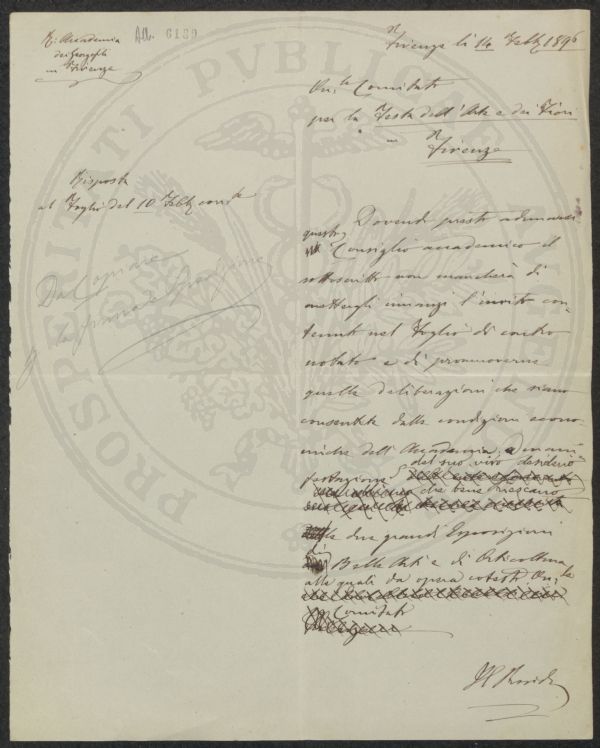 R. Accademia
dei Georgofili
in Firenze
Alb. 6189
Firenze li 14 Febb. 1896
On.le Comitato
per la Festa dell'Arte e dei Fiori
in
Firenze
Risposta
al Foglio del 10 Febb. corr.te
Da Copiare
la firma de
Dovendo presto adunarsi
questo
Consiglio accademico il
sottoscritto non mancherà di
mettergli innanzi l'invito con-
tenuto nel Foglio di contro
notato e di promuoverne
quelle deliberazioni che siano
consentite dalle condizioni econo-
miche dell'Accademia, a mani-
festazione del suo vivo desiderio
che bene riescano
le due grandi Esposizioni
di Belle Arti e di Orticoltura
alle quali da opera cotesto On.le
Comitato
Il Presid.
PROSPERITATI PVBLICAE